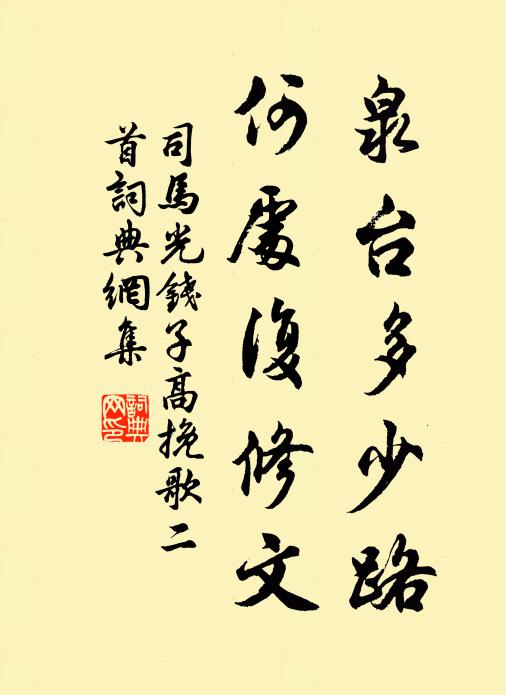 泉台多少路
何處復修文
司馬光錢子高挽歌二
首詞典網集
詞典
网印